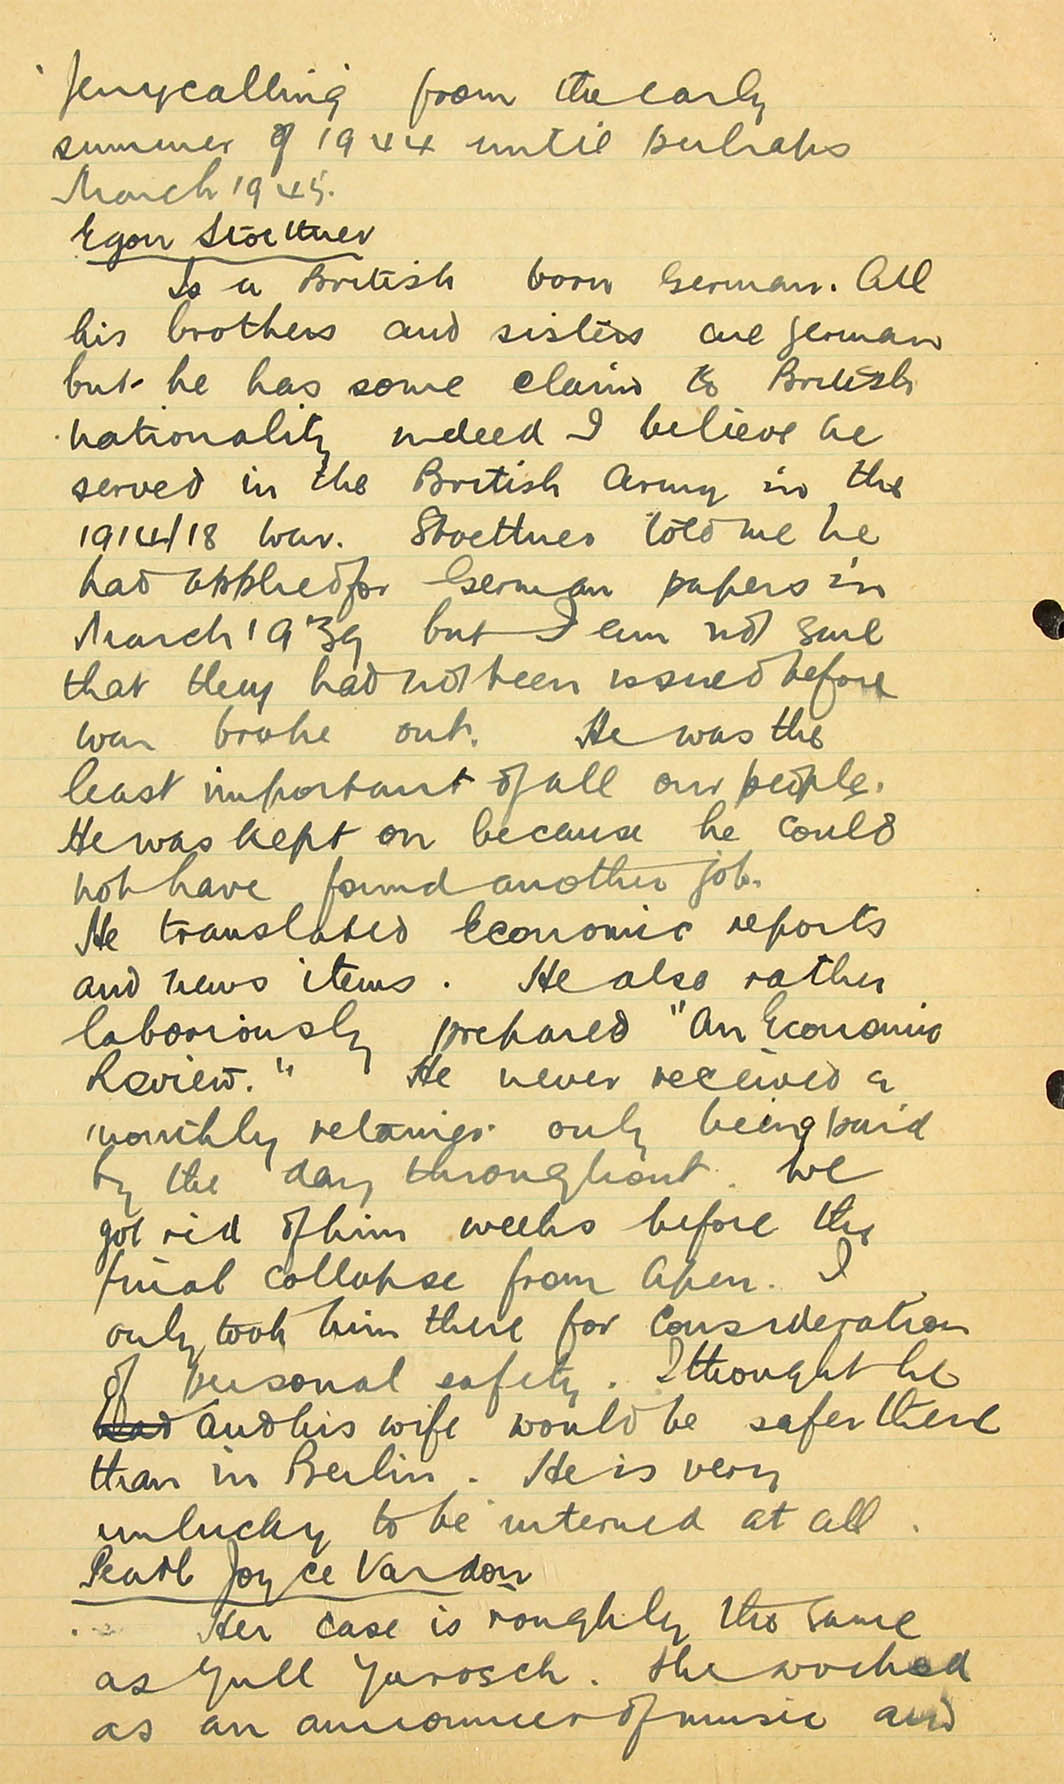 'Jerrycalling' from the early
summer of 1944 until perhaps
March 1945.
Egon Stoettner
Is a British born German. All
his brothers and sisters are german
but he has some claim to British
nationality indeed I believe he
served in the British Army in the
1914/18 war. Stoettner told me he
had applied for German papers in
March 1939 but I am not sure
that they had not been issued before
war broke out. He was the
least important of all our people.
He was kept on because he could
not have found another job.
He translated Economic reports
and news items. He also rather
laboriously prepared "An Economic
Review." He never received a
monthly retainer only being paid
by the day throughout. We
got rid of him weeks before the
final collapse from Apen. I
only took him there for consideration
of personal safety. I thought he
had and his wife would be safer there
than in Berlin. He is very
unlucky to be interned at all.
Pearl Joyce Vardon
Her case is roughly the same
as Gull Jarosch. She worked
as an announcer of music and